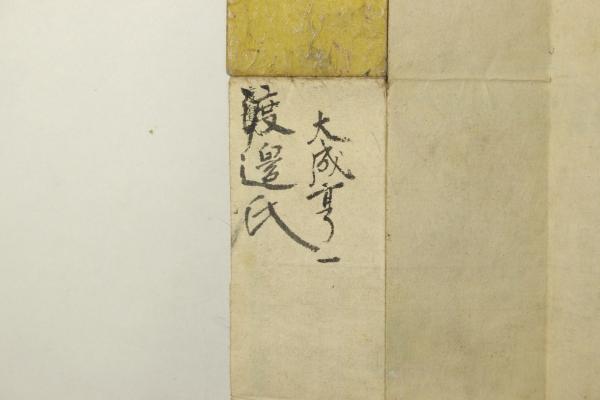 大成亨一
渡邉氏